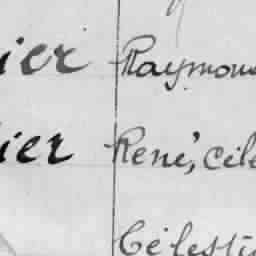 ier Raymon
ier René, Cél
Célesti